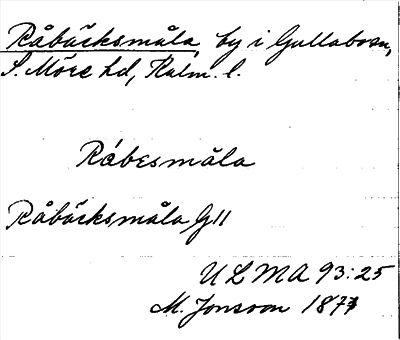 Råbäcksmåla, by i Gullabo sn,
S. Möre hd, Kalm. l.
Råbesmåla
Råbäcksmåla Gll
ULMA 93:25
M. Jonsson 1877